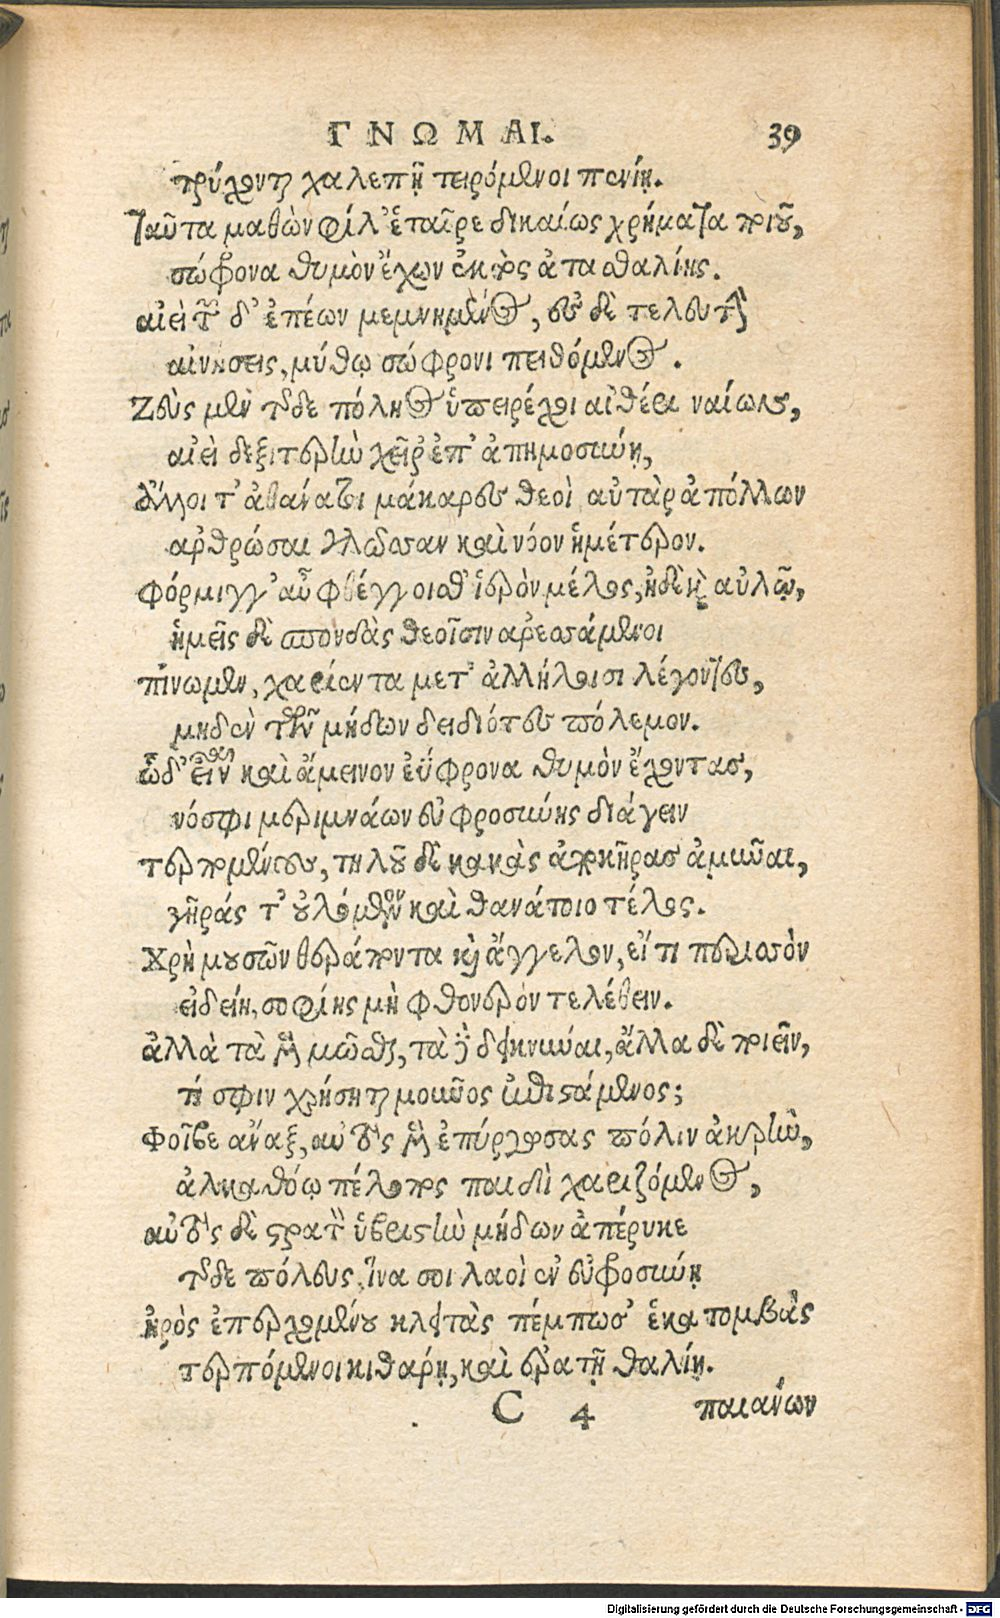 ΓΝΩΜΑΙ. 39
τρύχονται χαλεπῇ τειρόμενοι πενίῃ.
Ταῦτα μαθὼν φίλ' ἑταῖρε δικαίως χρήματα ποιοῦ,
σώφρονα θυμὸν ἔχων ἐκτὸς ἀτασθαλίης.
αἰεὶ τῶνδ' ἐπέων μεμνημένος, ἐς δὲ τελευτὴν
αἰνήσεις, μύθῳ σώφρονι πειθόμενος.
Ζεὺς μὲν τῆσδε πόληος ὑπειρέχοι αἰθέρι ναίων,
αἰεὶ δεξιτερὴν χεῖρ' ἐπ' ἀπημοσύνῃ,
ἄλλοι τ' ἀθάνατοι μάκαρες θεοὶ αὐτὰρ ἀπόλλων
ὀρθρώσαι γλῶσσαν καὶ νόον ἡμέτερον.
Φόρμιγγ' αὖ φθέγγοιθ' ἱερὸν μέλος, ἠδὲ καὶ αὐλῷ,
ἡμεῖς δὲ σπονδὰς θεοῖσιν ἀρεσσάμενοι
πίνωμεν, χαρίεντα μετ' ἀλλήλοισι λέγοντες,
μηδὲν τὸν μήδων δειδιότες πόλεμον.
ὧδ' εἶναι καὶ ἄμεινον ἐΰφρονα θυμὸν ἔχοντας,
νόσφι μεριμνάων εὐφροσύνης διάγειν
τερπομένους, τηλοῦ δὲ κακὰς ἀπὸ κῆρας ἀμῦναι,
γῆράς τ' οὐλόμενον καὶ θανάτοιο τέλος.
Χρὴ μουσῶν θεράποντα καὶ ἄγγελον, εἴ τι περισσὸν
εἰδείη, σοφίης μὴ φθονερὸν τελέθειν.
ἀλλὰ τὰ μὲν μῶσθαι, τὰ δὲ δεικνύναι, ἄλλα δὲ ποιεῖν,
τί σφιν χρήσηται μοῦνος ἐπιστάμενος;
Φοῖβε ἄναξ, αὐτὸς μὲν ἐπύργωσας πόλιν ἀκρὴν,
ἀλκαθόῳ πέλοπος παιδὶ χαριζόμενος,
αὐτὸς δὲ στρατὸν ὑβριστὴν μήδων ἀπέρυκε
τῆσδε πόλευς, ἵνα σοι λαοὶ ἐν εὐφροσύνῃ
ἦρος ἐπερχομένου κλειτὰς πέμπωσ' ἑκατομβὰς
τερπόμενοι κιθάρῃ, καὶ ἐρατῇ θαλίῃ.
C 4 παιάνων
Digitalisierung gefördert durch die Deutsche Forschungsgemeinschaft - DFG